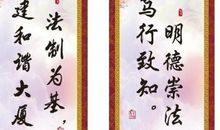 明德崇法
笃行致知。
法制为基，
建和谐大厦